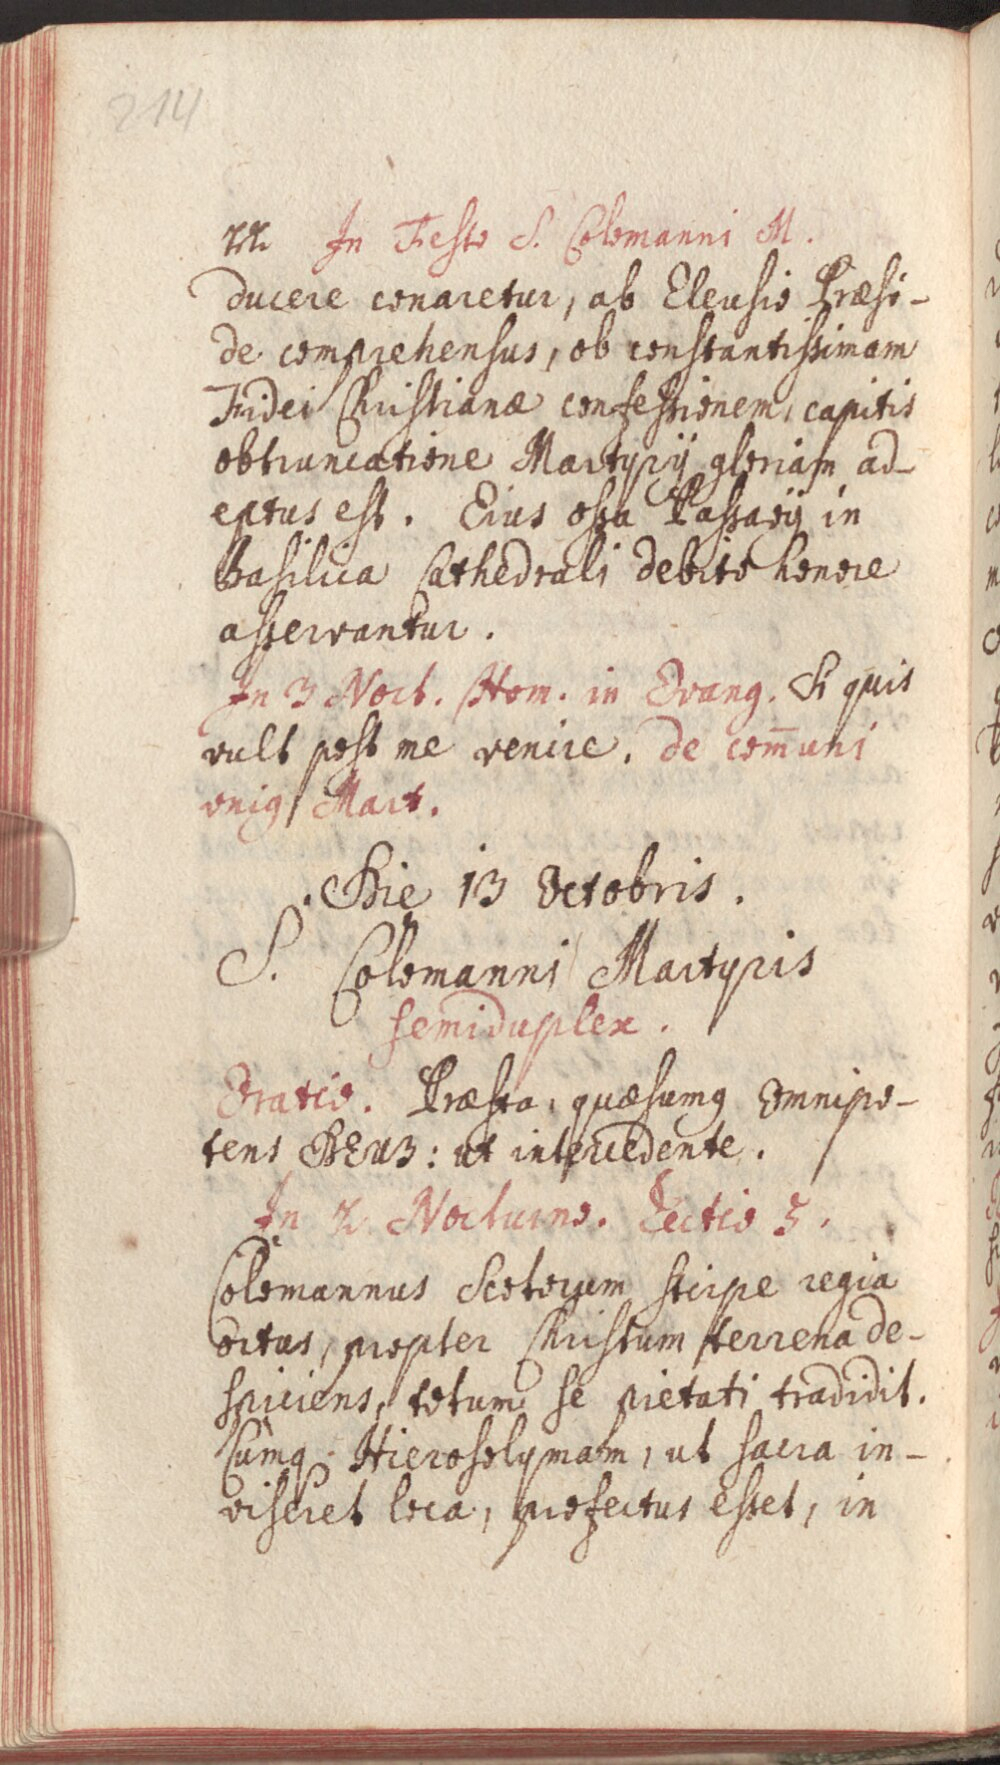 214
22 In Festo S. Colomanni M.
ducere conaretur, ab Eleusio Præsi-
de comprehensus, ob constantissimam
Fidei Christianæ confessionem, capitis
obtruncatione Martyrij gloriam ad-
eptus est. Eius ossa Passavij in
Basilica Cathedrali debito honore
asservantur.
In 3 Noct. Hom. in Evang. Si quis
vult post me venire. de com̄uni
uniꝰ Mart.
Die 13 Octobris.
S. Colomanni Martyris
semiduplex.
Oratio. Præsta, quæsumꝰ omnipo-
tens DEUS: ut intercedente.
In 2. Nocturno. Lectio 5.
Colomannus Scotorum stirpe regia
ortus, propter Christum terrena de-
spiciens, totum se pietati tradidit.
Cumq. Hierosolymam, ut sacra in-
viseret loca, profectus esset, in